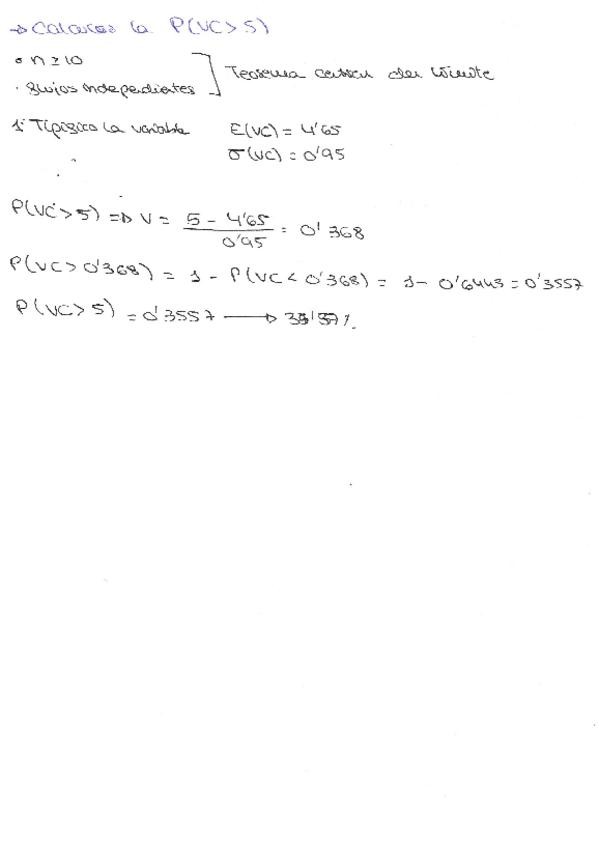 → Calcular la P(VC > 5)
• n ≥ 10
· flujos independientes ] Teorema central del límite
1º Tipifico la variable E(VC) = 4'65
σ(VC) = 0'95
P(VC > 5) ⇒ V = (5 - 4'65) / 0'95 = 0'368
P(VC > 0'368) = 1 - P(VC < 0'368) = 1 - 0'6443 = 0'3557
P(VC > 5) = 0'3557 → %